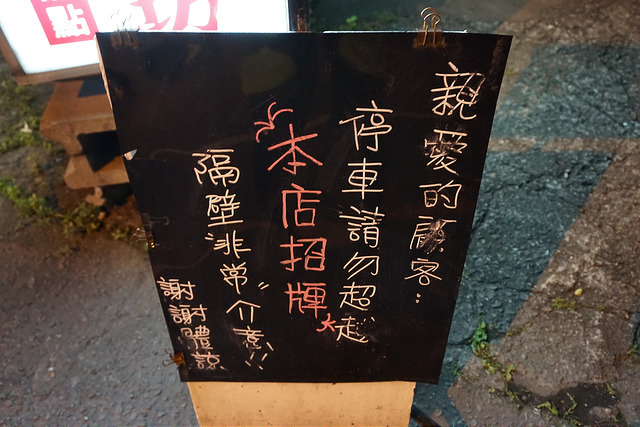 親愛的顧客:
停車請勿超越
本店招牌
隔壁"非常"介意!!
謝謝體諒
點